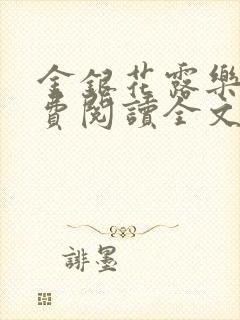 金銀花露樂
費閱讀全文
誹墨